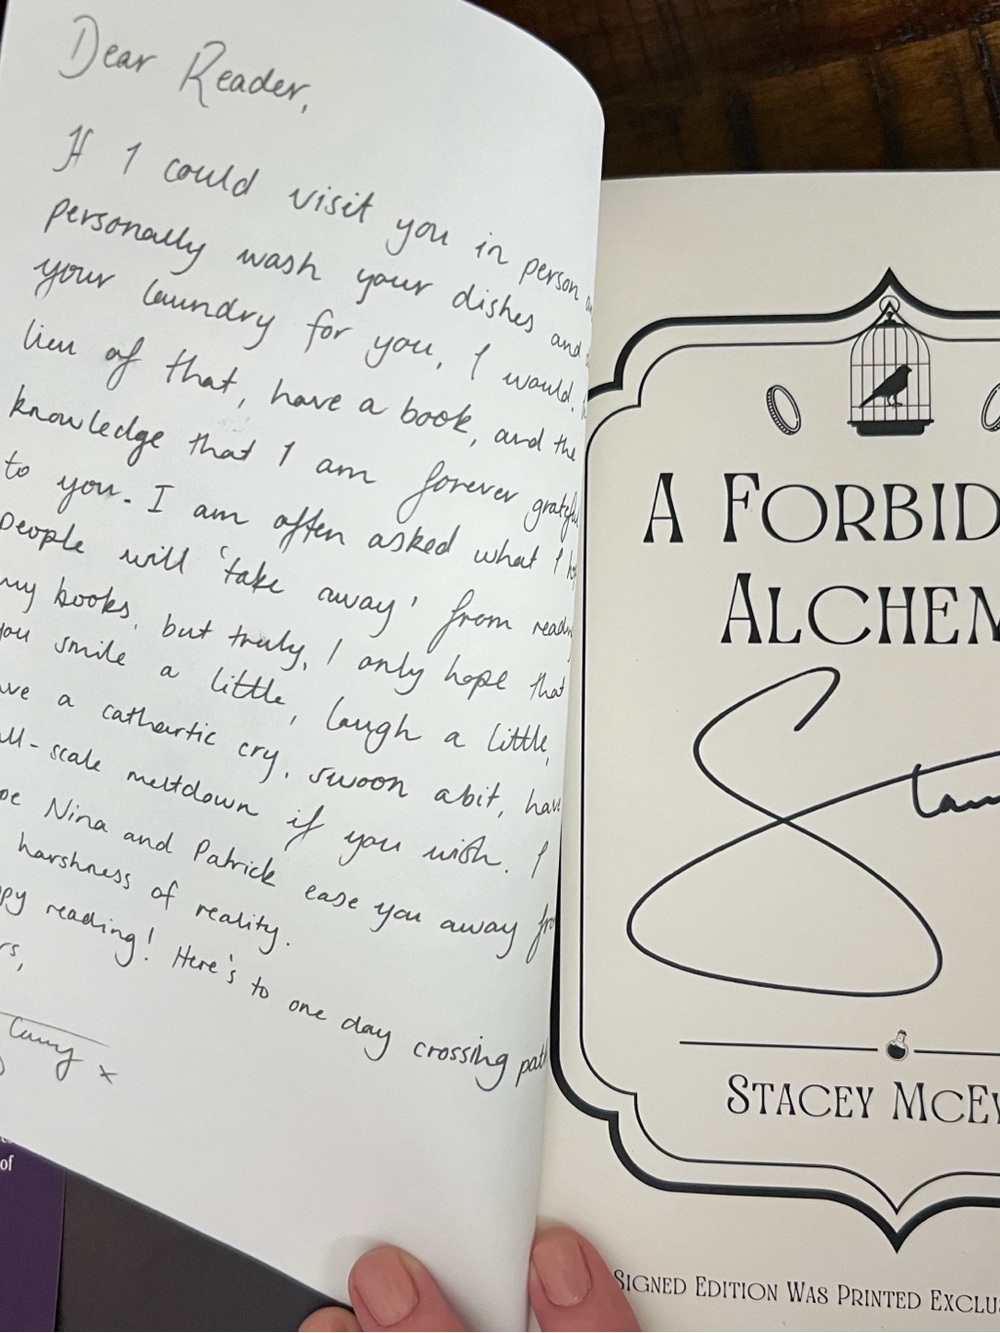 Dear Reader,
If I could visit you in person
personally wash your dishes and
your laundry for you, I would.
lieu of that, have a book, and the
knowledge that I am forever grateful
to you. I am often asked what I
people will 'take away' from
my books, but truly, I only hope that
you smile a little, laugh a little,
have a cathartic cry, swoon a bit, have
-scale meltdown if you wish. I
Nina and Patrick ease you away
harshness of reality.
reading! Here's to one day crossing
x
of
A FORBID
ALCHEM
Stacey McEw
SIGNED EDITION WAS PRINTED EXCLUS